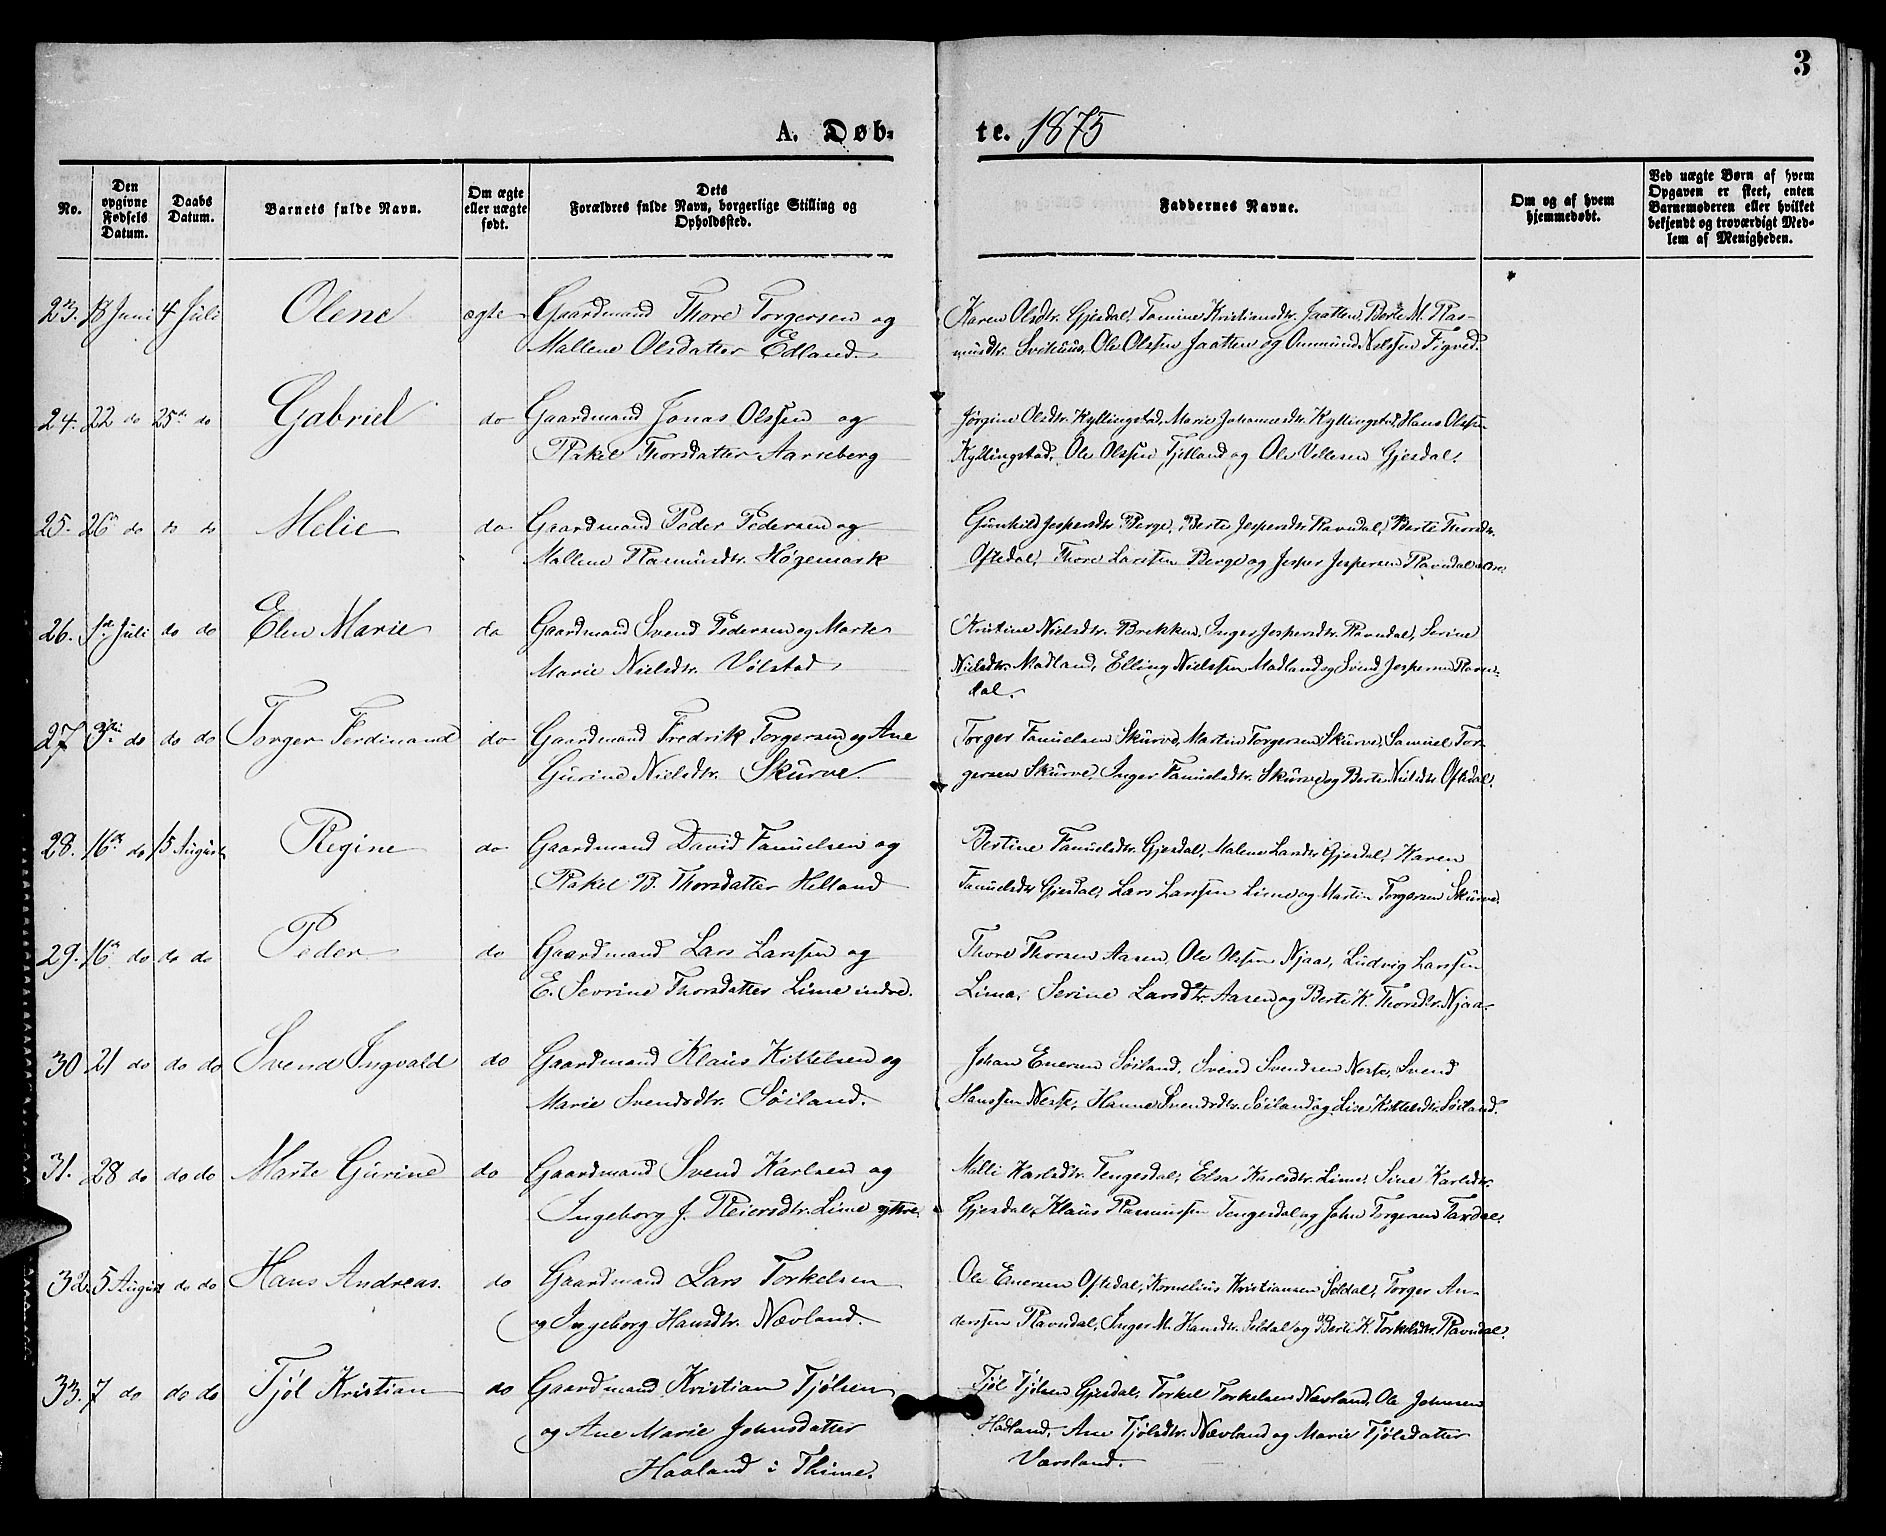 3
A. Døb=
te. 1875
No.
Den opgivne Fødsels Datum.
Daabs Datum.
Barnets fulde Navn.
Om ægte eller uægte født.
Dets Forældres fulde Navn, borgerlige Stilling og Opholdssted.
Faddernes Navne.
Om og af hvem hjemmedøbt.
Ved uægte Børn af hvem Opgaven er skeet, enten Barnemoderen eller hvilket bekjendt og troværdigt Medlem af Menigheden.
23. 18 Juni 4 Juli Olene ægte Gaardmand Thore Torgersen og
Mallene Olsdatter Edland.
Karen Olsdtr. Gjesdal, Tomine Kristiansdtr. Jaatten, Berte M. Ras-
musdtr. Ole Olssen Jaatten og Ommund Nilssen Figved.
24. 22 do 25de do Gabriel do Gaardmand Jonas Olssen og
Rakel Thorsdatter Aarseberg
Jørgine Olsdtr. Kyllingstad, Marie Johannesdtr. Kyllingstad, Hans Olssen
Kyllingstad, Ole Olssen Fjelland og Ole Vellesen Gjesdal.
25. 26 do do do Melie do Gaardmand Peder Pedersen og
Mallene Rasmusdtr. Høgemark
Gunhild Jespersdtr. Berge, Berte Jespersdtr. Ravndal, Berte Thorsdtr.
Oftedal, Thore Larssen Berge og Jesper Jespersen Ravndal
26. 1ste Juli do do Elen Marie do Gaardmand Svend Pedersen og Marte
Marie Nielsdtr. Vølstad.
Kristine Nielsdtr. Brekken, Inger Jespersdtr. Ravndal, Serine
Nielsdtr. Madland, Elling Nielssen Madland og Svend Jespersen Ravn-
dal.
27. 3die do do do Torger Ferdinand do Gaardmand Fredrik Torgersen og Ane
Gurine Nielsdtr. Skurve.
Torger Fanuelsen Skurve, Martin Torgersen Skurve, Samuel Tor-
gersen Skurve, Inger Fanuelsdtr. Skurve og Berte Nielsdtr Oftedal.
28. 16de do 15 August Regine do Gaardmand David Fanuelsen og
Rakel B. Thorsdatter Helland
Bertine Fanuelsdtr. Gjesdal, Malene Larsdtr. Gjesdal, Karen
Fanuelsdtr Gjesdal, Lars Larssen Lime og Martin Torgersen Skurve.
29. 16de do do do Peder do Gaardmand Lars Larssen og
E. Sevrine Thorsdatter Lime indre.
Thore Thorsen Aasen, Ole Olssen Njaa, Ludvig Larssen
Lima, Serine Larsdtr. Aasen og Berte K. Thorsdtr. Njaa.
30 21 do do do Svend Ingvald do Gaardmand Klaus Kittelsen og
Marie Svendsdtr. Søiland.
Johan Enersen Søiland, Svend Svendsen Nesse, Svend
Hanssen Nesse, Hanne Svendsdtr. Søiland og Lise Kittelsdtr. Søiland.
31. 28 do do do Marte Gurine do Gaardmand Svend Karlsen og
Ingeborg J. Reiersdtr. Lime ythre.
Malli Karlsdtr. Tengesdal, Elsa Karlsdtr. Lime, Sine Karlsdtr.
Gjesdal, Klaus Rasmussen Tengesdal, og John Torgersen
32. 5 August do do Hans Andreas. do Gaardmand Lars Torkelsen
og Ingeborg Hansdtr. Nævland.
Ole Enersen Oftedal, Kornelius Kristiansen Seldal, Torger An-
derssen Ravndal, Inger M. Hansdtr. Seldal og Berte K. Torkelsdtr. Ravndal.
33. 7 do do do Tjøl Kristian do Gaardmand Kristian Tjølsen
og Ane Marie Johnsdatter
Haaland i Thime.
Tjøl Tjølsen Gjesdal, Torkel Torkelsen Nævland, Ole Johnsen
Hadland, Ane Tjølsdtr. Nævland og Marie Tjølsdatter
Varsland.